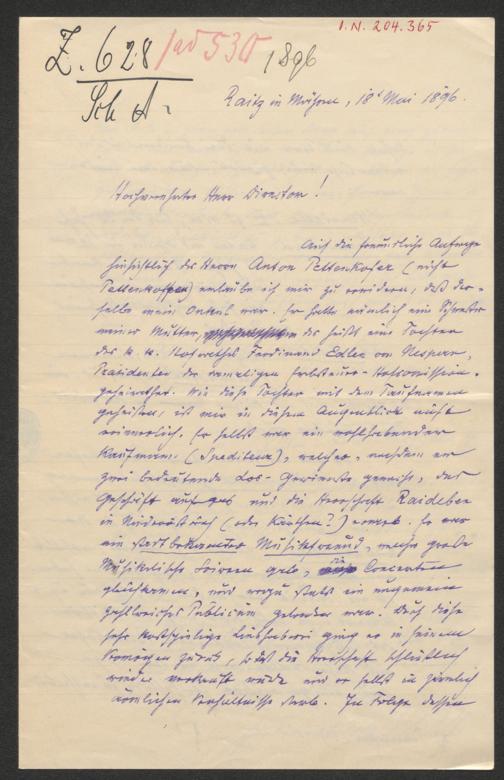 I.N. 204.365
Z. 628 / ad 530 1896
Sch A.
Raitz in Mähren, 18t Mai 1896.
Hochverehrter Herr Direktor!
Auf die freundliche Anfrage
hinsichtlich des Herrn Anton Pettenkofer (nicht
Pettenkoffer) erlaube ich mir zu erwidern, daß der-
selbe mein Onkel war. Er hatte nämlich eine Schwester
meiner Mutter, das heißt eine Tochter
des k. k. Hofrathes Ferdinand Edler von Nespern,
Präsidenten der damaligen Hofcommission,
geheirathet. Wie diese Tochter mit dem Taufnamen
geheißen, ist mir in diesem Augenblick nicht
erinnerlich. Er selbst war ein wohlhabender
Kaufmann (Spediteur), welcher, nachdem er
zwei bedeutende Los-Gewinnste gemacht, das
Geschäft aufgab und die Herrschaft
in Niederöstreich (oder Kärnthen?) erwarb. Er war
ein stadtbekannter Musikfreund, welcher große
Musikalische Soireen gab, die Concerten
glichkamen, und wozu stets ein ungemein
zahlreiches Publicum geladen war. Durch diese
sehr kostspielige Liebhaberei ging er in seinem
Vermögen zurück, so daß die Herrschaft schließlich
wieder verkauft wurde und er selbst in ziemlich
ärmlichen Verhältnissen starb. In Folge dessen